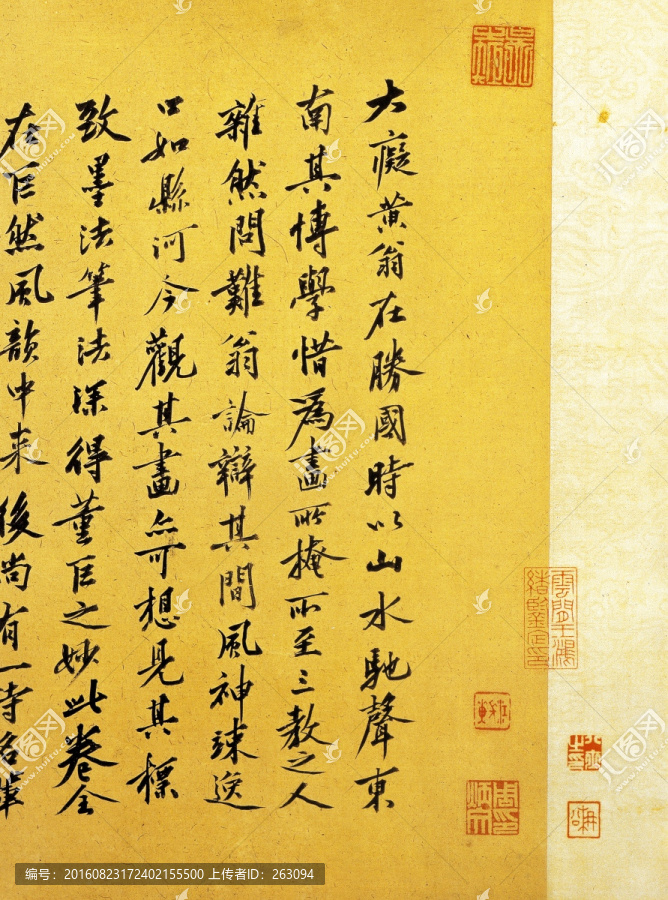 大癡黄翁在勝國時以山水馳聲東
南其博學惜為畫所掩所至三教之人
雜然問難翁論辯其間風神竦逸
口如懸河今觀其畫亦可想見其標
致墨法筆法深得董巨之妙此卷全
在巨然風韻中来後尚有一時名輩
雲間王鴻緒鑒定印
编号：20160823172402155500 上传者ID：263094
汇图网
www.huitu.com